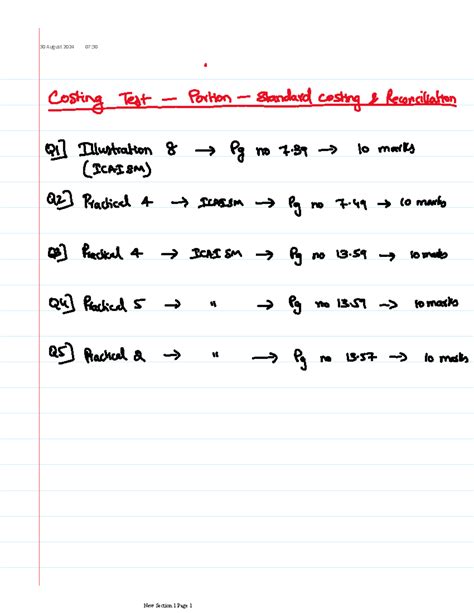 30 August 2024 07:30
Costing Test — Portion — Standard costing & Reconciliation
Q1] Illustration 8 → Pg no 7.39 → 10 marks
(ICAI SM)
Q2] Practical 4 → ICAI SM → Pg no 7.49 → 10 marks
Q3] Practical 4 → ICAI SM → Pg no 13.59 → 10 marks
Q4] Practical 5 → " → Pg no 13.57 → 10 marks
Q5] Practical 2 → " → Pg no 13.57 → 10 marks
New Section 1 Page 1